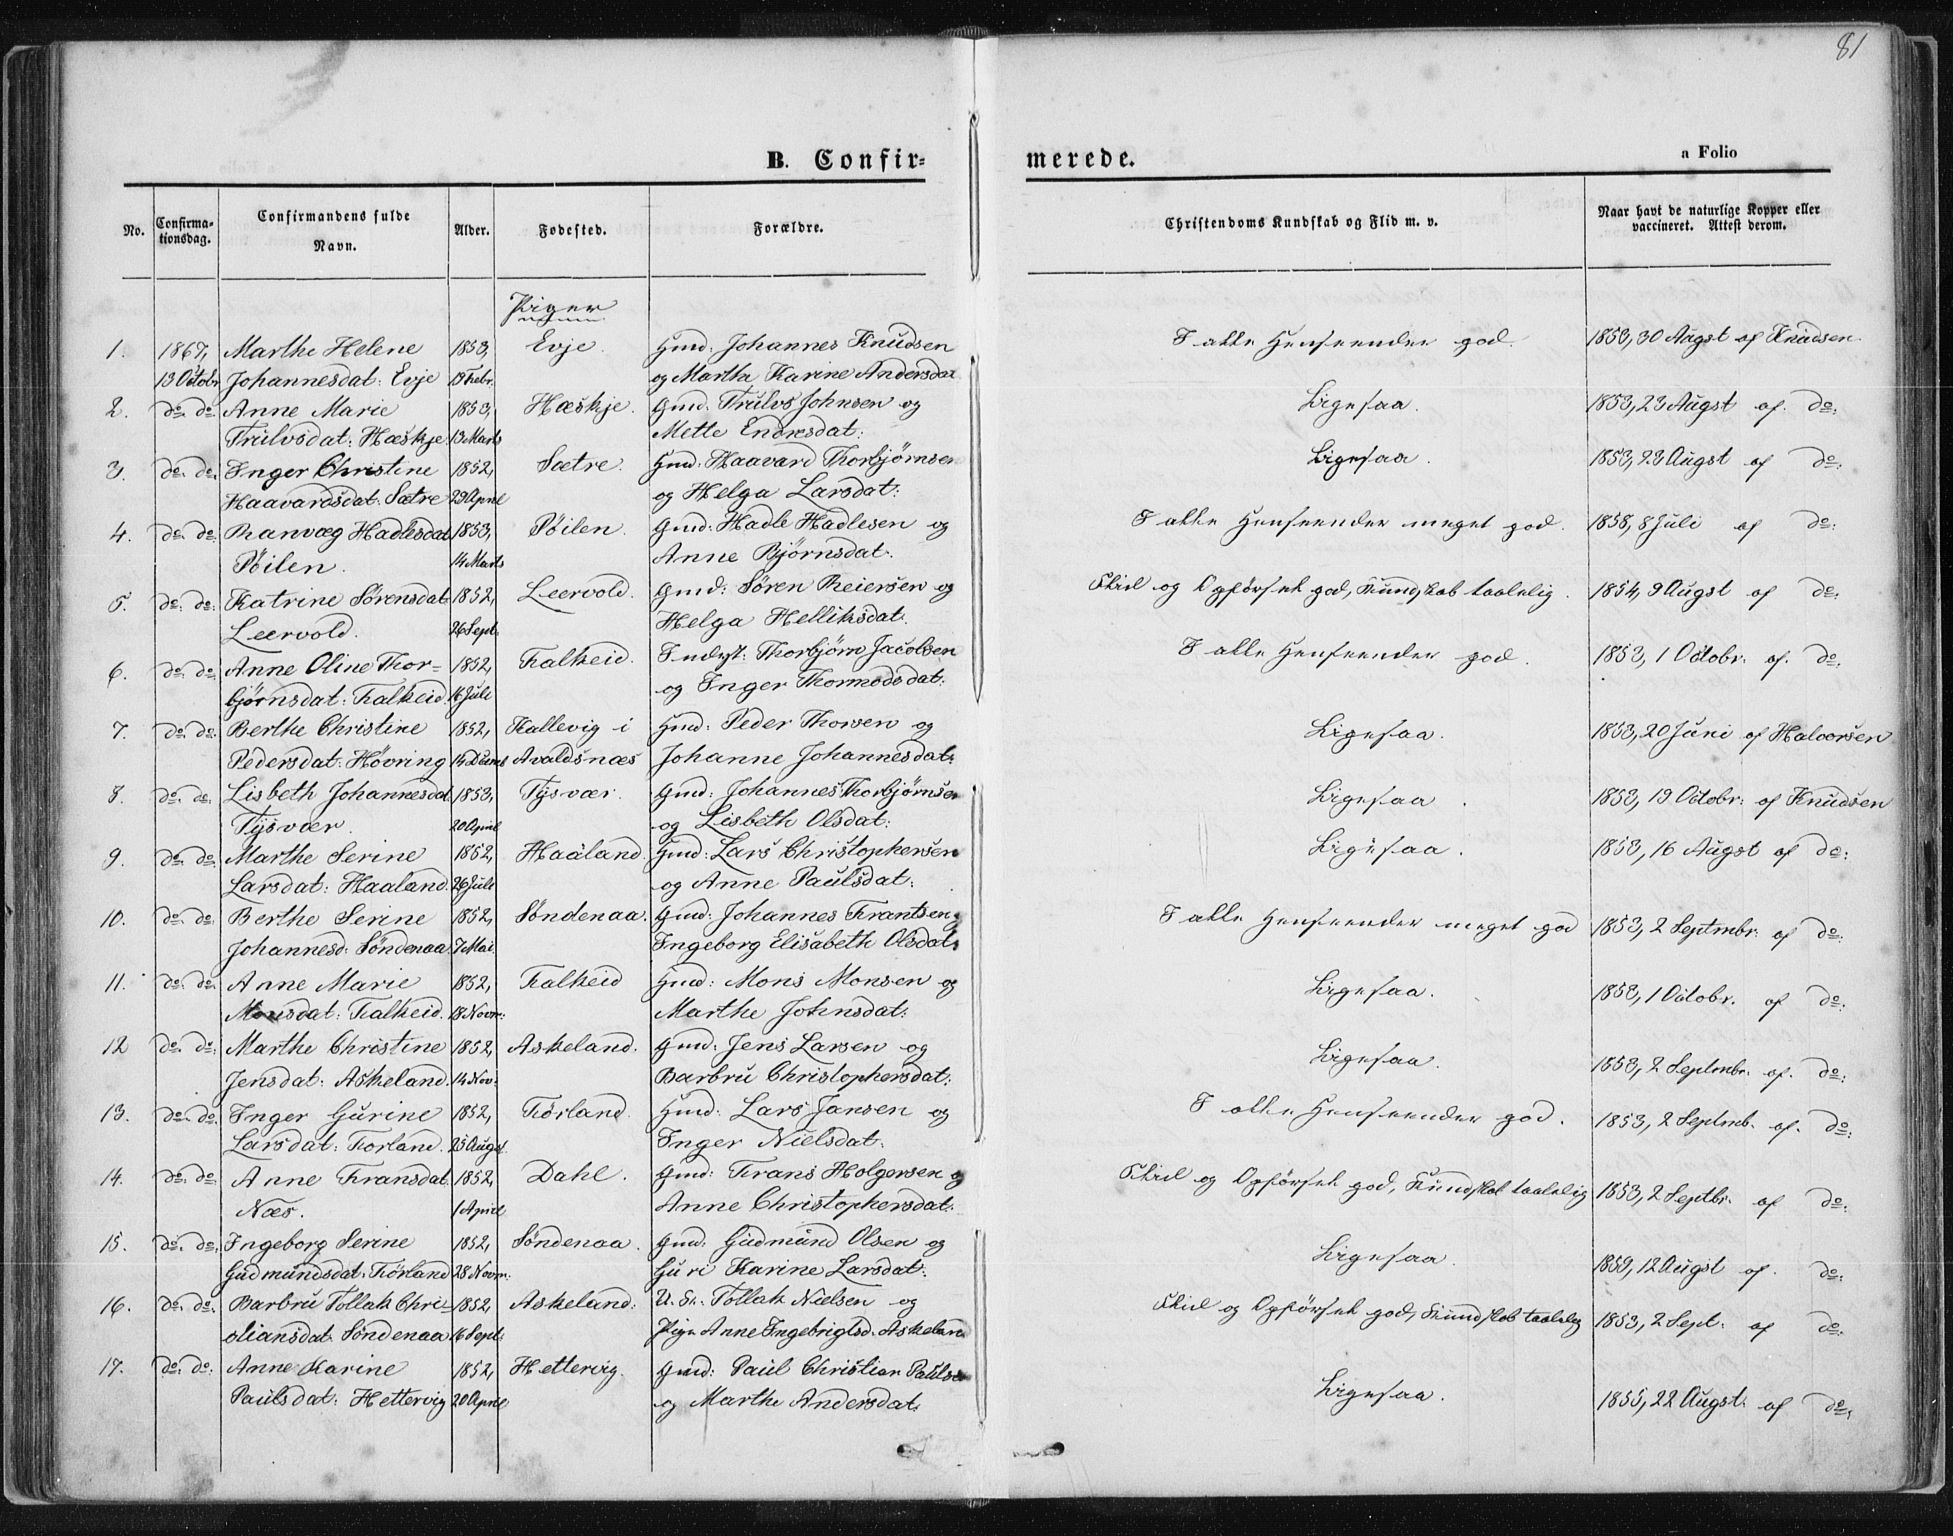 81
B. Confir-
merede.
a Folio
No.
Confirma-
tionsdag.
Confirmandens fulde
Navn.
Alder.
Fødested.
Forældre.
Christendoms Kundskab og Flid m. v.
Naar havt de naturlige Kopper eller
vaccineret. Attest derom.
Piger
1. 1867, Marthe Helene 1853, Evje. Gmd: Johannes Knudsen I alle Henseender god. 1853, 30 Augst af Knudsen
13 Octobr Johannesdat: Evje 13 Febr. og Martha Karine Andersdat
2. do. do: Anne Marie 1853, Hæskje. Gmd: Trulvs Johnsen og Ligesaa. 1853, 23 Augst af. do:
Trulvsdat: Hæskje 13 Marts Mette Endresdat:
3. do. do. Inger Christine 1852, Sætre. Gmd: Haavard Thorbjørnsen Ligesaa. 1853, 23 Augst af do:
Haavardsdat: Sætre 29 April og Helga Larsdat:
4. do. do: Ranvæg Hadlesdat 1853, Pøilen. Gmd: Hadle Hadlesen og I alle Henseender meget god. 1858, 8 Juli af do:
Pøilen. 14 Marts Anne Bjørnsdat:
5. do. do: Katrine Sørensdat 1852, Leervold. Gmd: Søren Reiersen og Skik og Opførsel god, Kundskab taalelig. 1854, 9 Augst af do:
Leervold. 26 Sept: Helga Helliksdat:
6. do. do: Anne Oline Thor- 1852, Falkeid. Inderst: Thorbjørn Jacobsen I alle Henseender god. 1853, 1 Octobr: af. do.
bjørnsdat: Falkeid. 16 Juli og Inger Thormodsdat:
7. do. do. Berthe Christine 1852, Kallevig i Gmd: Peder Thorsen og Ligesaa. 1853, 20 Juni af Halvorsen
Pedersdat: Høvring 14 Avaldsnæs Johanne Johannesdat:
8. do. do. Lisbeth Johannesdat 1853, Tysvær. Gmd: Johannes Thorbjørnsen Ligesaa. 1853, 19 Octobr: af Knudsen
Tysvær. 20 April og Lisbeth Olsdat:
9. do. do. Marthe Serine 1852, Haaland. Gmd: Lars Christophersen Ligesaa. 1853, 16 Augst af do:
Larsdat: Haaland. 26 Juli og Anne Paulsdat:
10. do. do: Berthe Serine 1852, Søndenaa. Gmd: Johannes Frantsen og I alle Henseender meget god 1853, 2 Septmbr: af do:
Johannesd: Søndenaa. 7 Mai. Ingeborg Elisabeth Olsdat:
11. do. do. Anne Marie 1852, Falkeid Gmd: Mons Monsen og Ligesaa. 1853, 1 Octobr. af do:
Monsdat: Falkeid. 18 Novr: Marthe Johnsdat:
12 do. do: Marthe Christine 1852, Askeland. Gmd: Jens Larsen og Ligesaa. 1853, 2 Septmbr. af. do:
Jensdat: Askeland. 14 Nov: Barbru Christophersdat:
13. do. do. Inger Gurine 1852, Førland. Gmd: Lars Jansen og I alle Henseender god. 1853, 2 Septmb. af. do:
Larsdat: Førland. 25 Augst. Inger Nielsdat:
14. do. do: Anne Fransdat 1852, Dahl. Gmd: Frans Holgersen og Skik og Opførsel god, Kundskab taalelig 1853, 2 Septbr. af do:
Næs. 1 April Anne Christophersdat:
15. do. do. Ingeborg Serine 1852, Søndenaa. Gmd: Gudmund Olsen og Ligesaa. 1859, 12 Augst af. do:
Gudmundsdat: Førland 28 Novr: Guri Karine Larsdat:
16. do. do. Barbru Tollak Chri- 1852, Askeland: U. Sr: Tollak Nielsen og Skik og Opførsel god, Kundskab taalelig 1853, 2 Sept: af do:
stiansdat: Søndenaa 16 Sept: Pige Anne Ingebrigtsd: Askeland
17. do. do: Anne Karine 1852, Hettervig. Gmd: Paul Christian Paulsen Ligesaa. 1855, 22 Augst: af do,
Paulsdat: Hettervig 20 April og Marthe Andersdat.